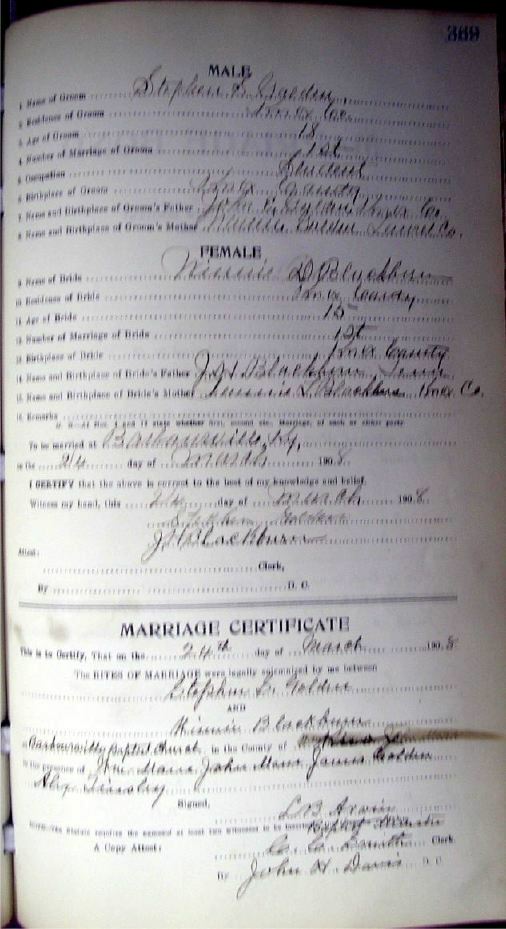 369
MALE
1. Name of Groom Stephen
2. Residence of Groom Knox Co.
3. Age of Groom 18
4. Number of Marriage of Groom 1st
5. Occupation Student
6. Birthplace of Groom Knox County
7. Name and Birthplace of Groom's Father John Knox Co.
8. Name and Birthplace of Groom's Mother Golden Laurel Co.
FEMALE
9. Name of Bride Minnie D Blackburn
10. Residence of Bride Knox County
11. Age of Bride 15
12. Number of Marriage of Bride 1st
13. Birthplace of Bride Knox County
14. Name and Birthplace of Bride's Father J. H Blackburn Tenn
15. Name and Birthplace of Bride's Mother Blackburn Knox Co.
16. Remarks
To be married at Barbourville, Ky,
on the 24 day of March 1908
I CERTIFY that the above is correct to the best of my knowledge and belief.
Witness my hand, this 24 day of March 1908
Stephen Golden
J H Blackburn
Attest:
Clerk,
By D. C.
MARRIAGE CERTIFICATE
This is to Certify, That on the 24th day of March 1908
The RITES OF MARRIAGE were legally solemnized by me between
Stephen Golden
AND
Minnie Blackburn
at Barbourville Baptist Church, in the County of Knox
in the presence of John James Golden
Alex Tinsley
Signed,
Baptist Minister
A Copy Attest: Clerk
By John H. Davis D. C.